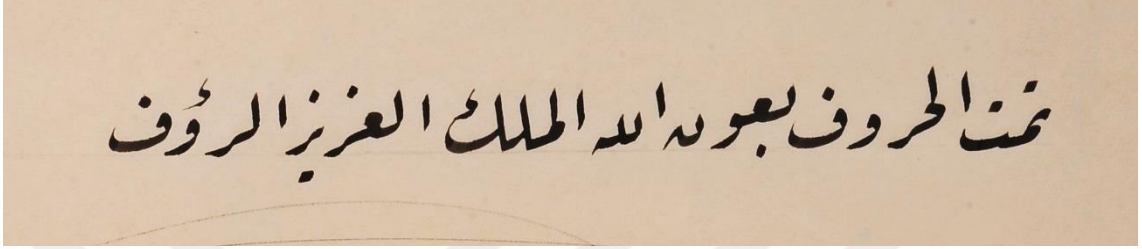 تمت الحروف بعون الله الملك العزيز الرؤف